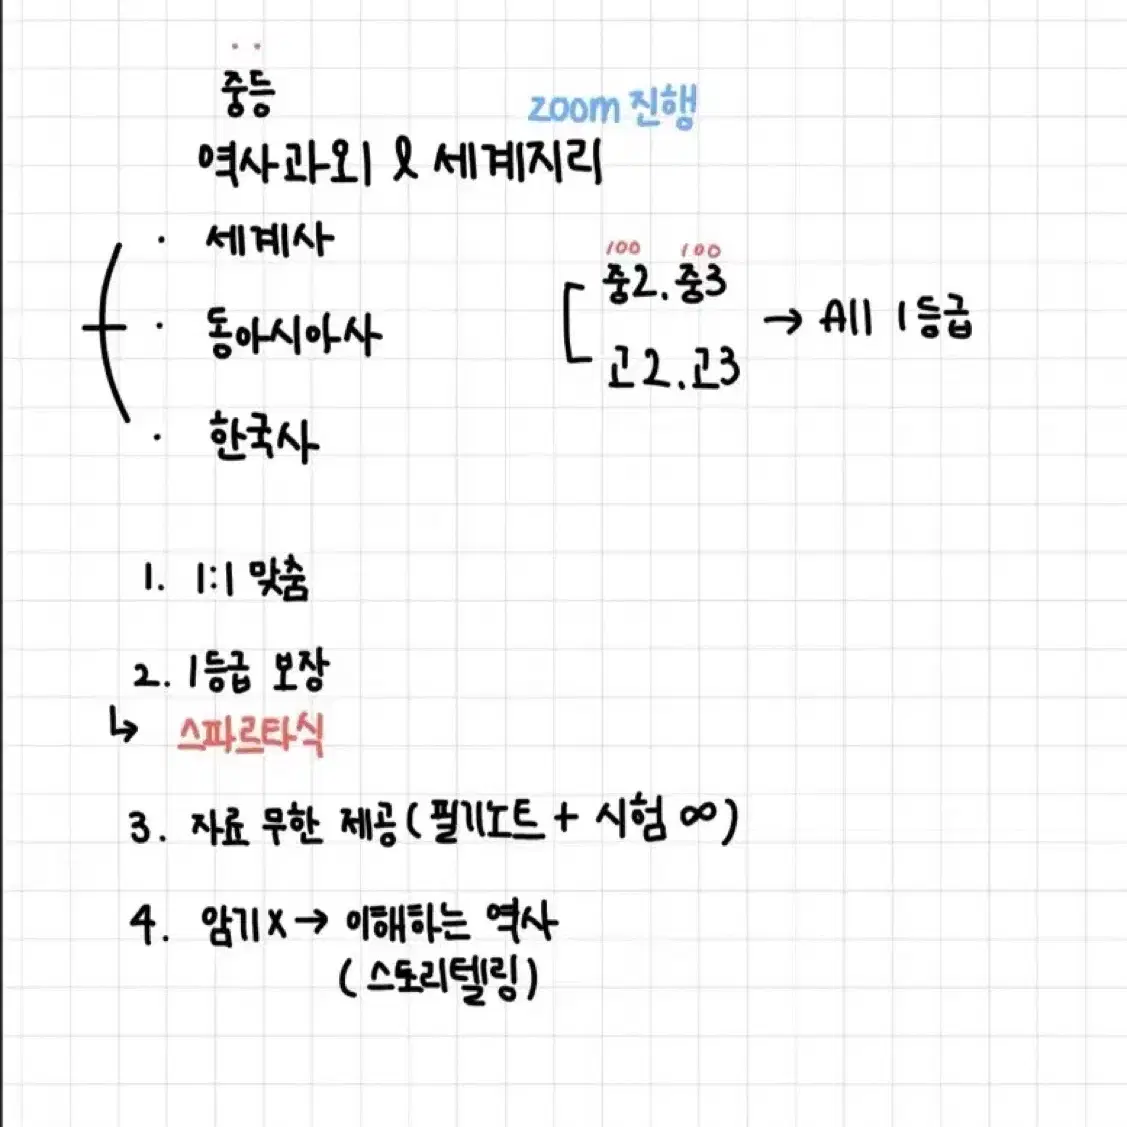 중등
zoom 진행
역사과외 & 세계지리
· 세계사
· 동아시아사
· 한국사
100 100
중2. 중3
고2. 고3
→ All 1등급
1. 1:1 맞춤
2. 1등급 보장
↳ 스파르타식
3. 자료 무한 제공 (필기노트 + 시험 ∞)
4. 암기 X → 이해하는 역사
(스토리텔링)